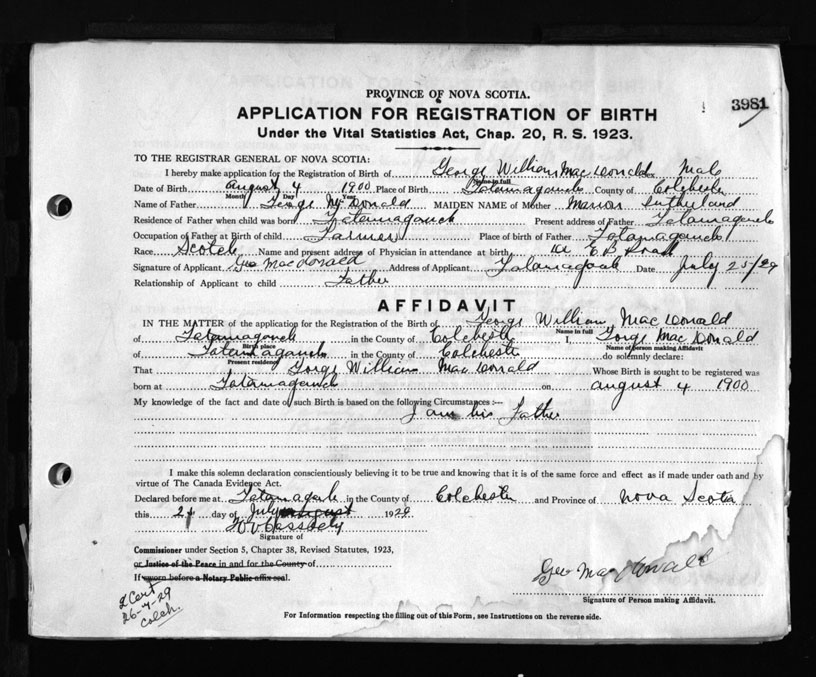 PROVINCE OF NOVA SCOTIA.
3981
APPLICATION FOR REGISTRATION OF BIRTH
Under the Vital Statistics Act, Chap. 20, R. S. 1923.
TO THE REGISTRAR GENERAL OF NOVA SCOTIA:
I hereby make application for the Registration of Birth of George William MacDonald Sex Male
Name in full
Date of Birth August 4 1900 Place of Birth Tatamagouch County of Colchester
Month Day Year
Name of Father George McDonald MAIDEN NAME of Mother Marion Sutherland
Residence of Father when child was born Tatamagouch Present address of Father Tatamagouch
Occupation of Father at Birth of child Farmer Place of birth of Father Tatamagouch
Race Scotch Name and present address of Physician in attendance at birth Dr E.B.
Signature of Applicant Geo MacDonald Address of Applicant Tatamagouch Date July 25/29
Relationship of Applicant to child Father
AFFIDAVIT
IN THE MATTER of the application for the Registration of the Birth of George William MacDonald
Name in full
of Tatamagouch in the County of Colchester I, George MacDonald
Birth place Name of person making Affidavit
of Tatamagouch in the County of Colchester do solemnly declare:
Present residence
That George William MacDonald Whose Birth is sought to be registered was
born at Tatamagouch on August 4 1900
My knowledge of the fact and date of such Birth is based on the following Circumstances :—
I am his Father
I make this solemn declaration conscientiously believing it to be true and knowing that it is of the same force and effect as if made under oath and by
virtue of The Canada Evidence Act.
Declared before me at Tatamagouch in the County of Colchester and Province of Nova Scotia
this day of July August 1929
Signature of
Commissioner under Section 5, Chapter 38, Revised Statutes, 1923,
or Justice of the Peace in and for the County of
If sworn before a Notary Public affix seal.
Geo MacDonald
Signature of Person making Affidavit.
Cert
26-7-29
Colch.
For Information respecting the filling out of this Form, see Instructions on the reverse side.